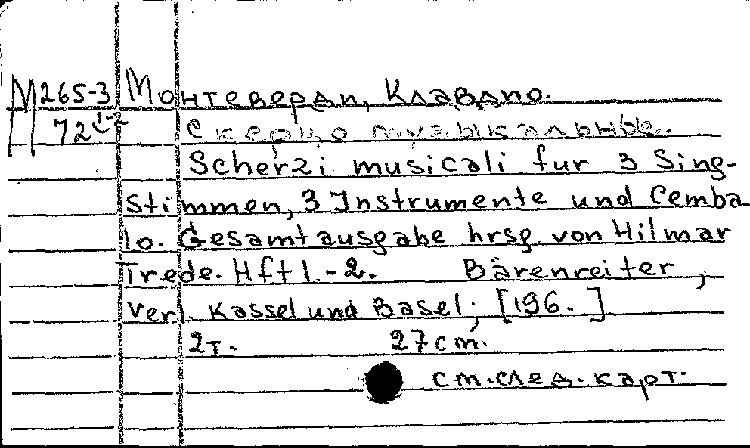 М 265-3 Монтеверди, Клавдио.
72 1-2 Скерцо музыкальные.
Scherzi musicali fur 3 Sing-
Stimmen, 3 Instrumente und Cemba
lo. Gesamtausgabe hrsg. von Hilmar
Trede. Hft 1.-2. Bärenreiter,
Verl. Kassel und Basel; [196. ]
2т. 27cm.
см.след.карт.